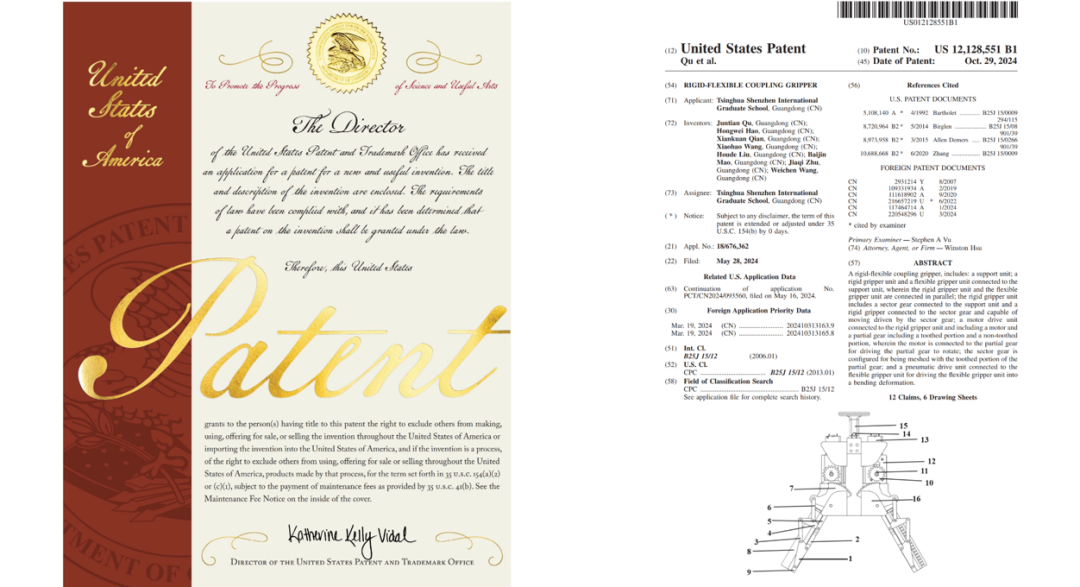 United
States
of
America
To Promote the Progress
of Science and Useful Arts
The Director
of the United States Patent and Trademark Office has received
an application for a patent for a new and useful invention. The title
and description of the invention are enclosed. The requirements
of law have been complied with, and it has been determined that
a patent on the invention shall be granted under the law.
Therefore, this United States
Patent
grants to the person(s) having title to this patent the right to exclude others from making,
using, offering for sale, or selling the invention throughout the United States of America or
importing the invention into the United States of America, and if the invention is a process,
of the right to exclude others from using, offering for sale or selling throughout the United
States of America, products made by that process, for the term set forth in 35 U.S.C. 154(a)(2)
or (c)(1), subject to the payment of maintenance fees as provided by 35 U.S.C. 41(b). See the
Maintenance Fee Notice on the inside of the cover.
Katherine Kelly Vidal
Director of the United States Patent and Trademark Office
US012128551B1
(12) United States Patent
Qu et al.
(10) Patent No.: US 12,128,551 B1
(45) Date of Patent: Oct. 29, 2024
(54) RIGID-FLEXIBLE COUPLING GRIPPER
(71) Applicant: Tsinghua Shenzhen International
Graduate School, Guangdong (CN)
(72) Inventors: Juntian Qu, Guangdong (CN);
Hongwei Hao, Guangdong (CN);
Xiankuan Qian, Guangdong (CN);
Xiaohao Wang, Guangdong (CN);
Houde Liu, Guangdong (CN); Baijin
Mao, Guangdong (CN); Jiaqi Zhu,
Guangdong (CN); Weichen Wang,
Guangdong (CN)
(73) Assignee: Tsinghua Shenzhen International
Graduate School, Guangdong (CN)
( * ) Notice: Subject to any disclaimer, the term of this
patent is extended or adjusted under 35
U.S.C. 154(b) by 0 days.
(21) Appl. No.: 18/676,362
(22) Filed: May 28, 2024
Related U.S. Application Data
(63) Continuation of application No.
PCT/CN2024/093560, filed on May 16, 2024.
(30) Foreign Application Priority Data
Mar. 19, 2024 (CN) ........................ 202410313163.9
Mar. 19, 2024 (CN) ........................ 202410313165.8
(51) Int. Cl.
B25J 15/12 (2006.01)
(52) U.S. Cl.
CPC .................................... B25J 15/12 (2013.01)
(58) Field of Classification Search
CPC .................................................... B25J 15/12
See application file for complete search history.
(56) References Cited
U.S. PATENT DOCUMENTS
5,108,140 A * 4/1992 Bartholet ............. B25J 15/0009
294/115
8,720,964 B2 * 5/2014 Birglen ................ B25J 15/08
901/39
8,973,958 B2 * 3/2015 Allen Demers ..... B25J 15/0266
901/39
10,688,668 B2 * 6/2020 Zhang ................. B25J 15/0009
FOREIGN PATENT DOCUMENTS
CN 2931214 Y 8/2007
CN 109331934 A 2/2019
CN 111618902 A 9/2020
CN 216657219 U * 6/2022
CN 117464714 A 1/2024
CN 220548296 U 3/2024
* cited by examiner
Primary Examiner — Stephen A Vu
(74) Attorney, Agent, or Firm — Winston Hsu
(57) ABSTRACT
A rigid-flexible coupling gripper, includes: a support unit; a
rigid gripper unit and a flexible gripper unit connected to the
support unit, wherein the rigid gripper unit and the flexible
gripper unit are connected in parallel; the rigid gripper unit
includes a sector gear connected to the support unit and a
rigid gripper connected to the sector gear and capable of
moving driven by the sector gear; a motor drive unit
connected to the rigid gripper unit and including a motor and
a partial gear including a toothed portion and a non-toothed
portion, wherein the motor is connected to the partial gear
for driving the partial gear to rotate; the sector gear is
configured for being meshed with the toothed portion of the
partial gear; and a pneumatic drive unit connected to the
flexible gripper unit for driving the flexible gripper unit into
a bending deformation.
12 Claims, 6 Drawing Sheets
15
14
13
12
11
10
7
16
6
5
4
3
2
8
1
9